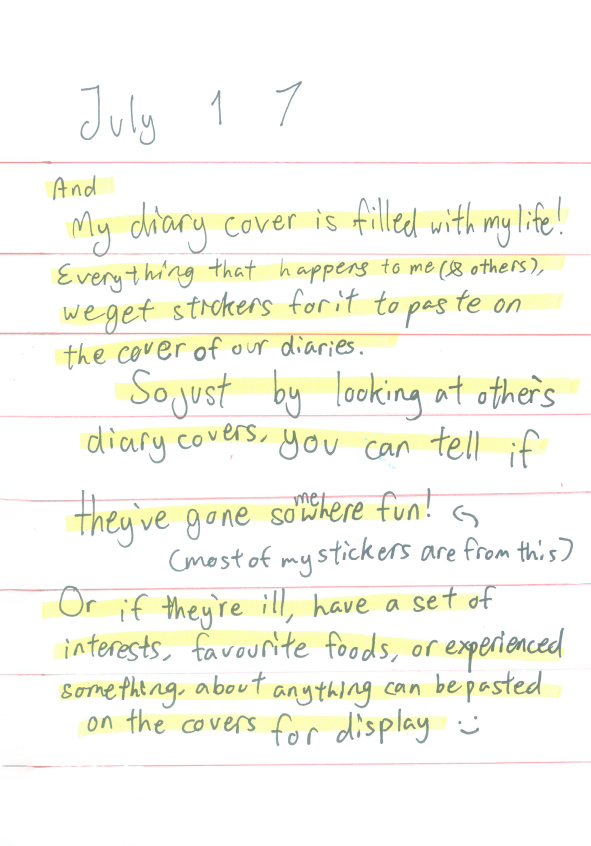 July 17
And
My diary cover is filled with my life!
Everything that happens to me (& others),
we get stickers for it to paste on
the cover of our diaries.
So just by looking at other's
diary covers, you can tell if
they've gone somewhere fun!
(most of my stickers are from this)
Or if they're ill, have a set of
interests, favourite foods, or experienced
something. about anything can be pasted
on the covers for display :)